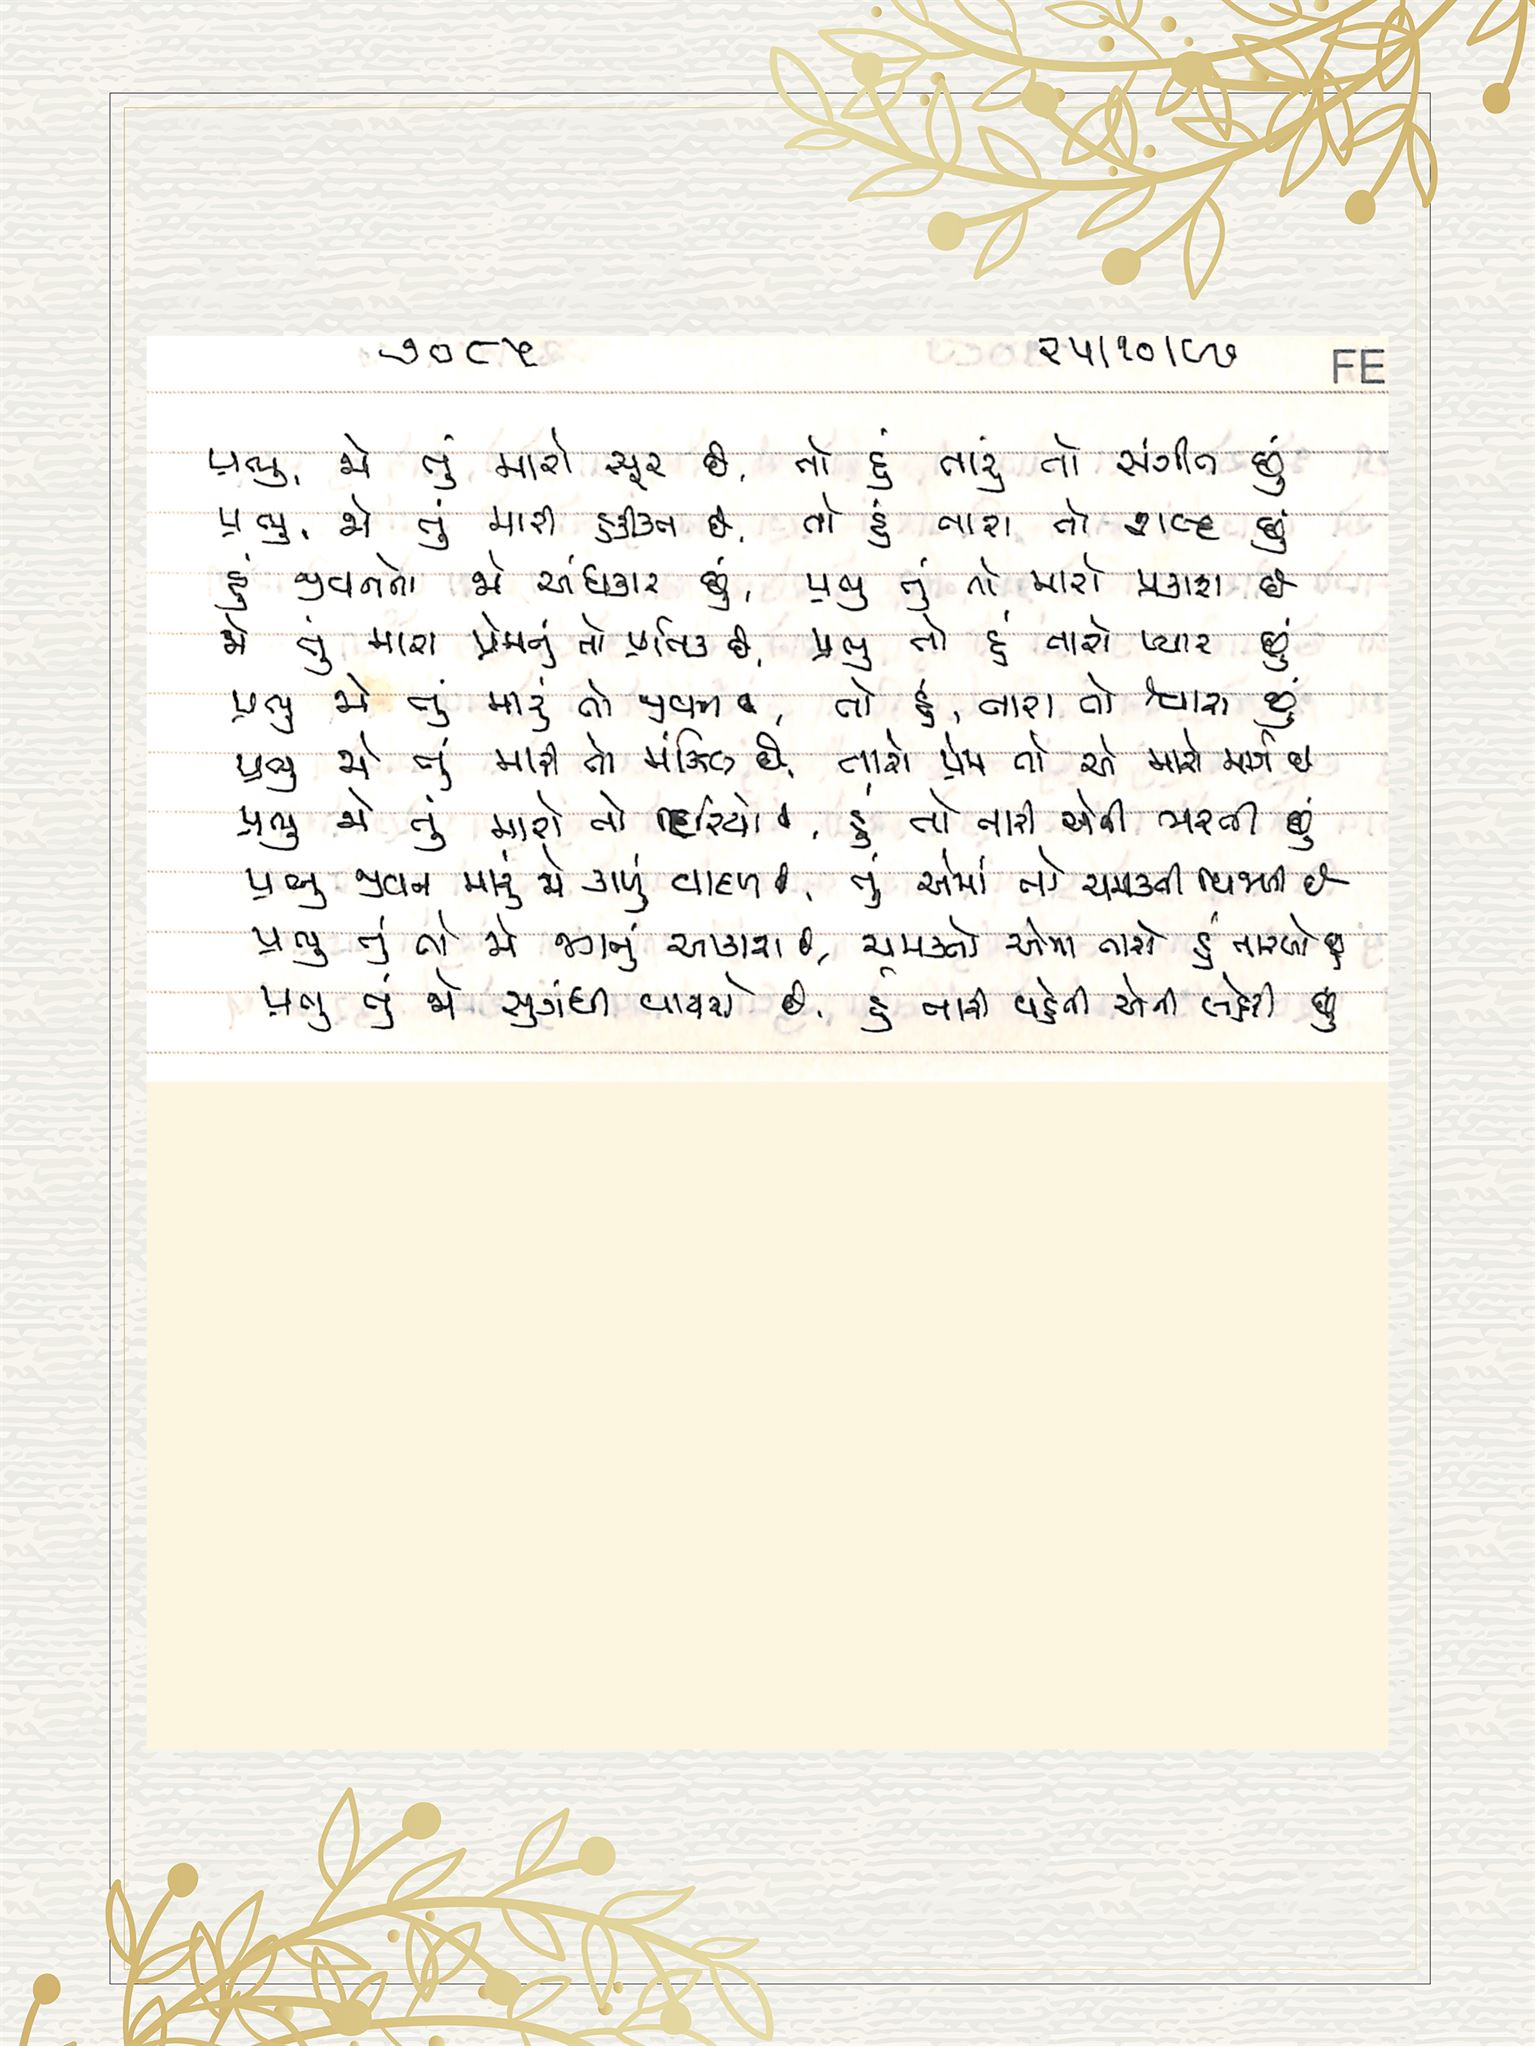 ૭૦૮૫ ૨૫/૧૦/૯૭ FE
પ્રભુ, જો તું મારો સૂર છે, તો હું તારું તો સંગીત છું
પ્રભુ, જો તું મારી હકીકત છે, તો હું તારા તો શબ્દ છું
હું જીવનનો જો અંધકાર છું, પ્રભુ તું તો મારો પ્રકાશ છે
જો તું મારા પ્રેમનું તો પ્રતિક છે, પ્રભુ તો હું તારો પ્યાર છું
પ્રભુ જો તું મારું તો જીવન છે, તો હું, તારા તો શ્વાસ છું
પ્રભુ જો તું મારી તો મંઝિલ છે, તારો પ્રેમ તો એ મારો માર્ગ છે
પ્રભુ જો તું મારો તો દરિયો છે, હું તો તારી એવી ભરતી છું
પ્રભુ જીવન મારું જો કાળું વાદળ છે, તું એમાં તો ચમકતી વિજળી છે
પ્રભુ તું તો જો જગનું આકાશ છે, ચમકતો એમા તારો હું તારલો છું
પ્રભુ તું જો સુગંધી વાયરો છે, હું તારી વહેતી એની લહેરી છું